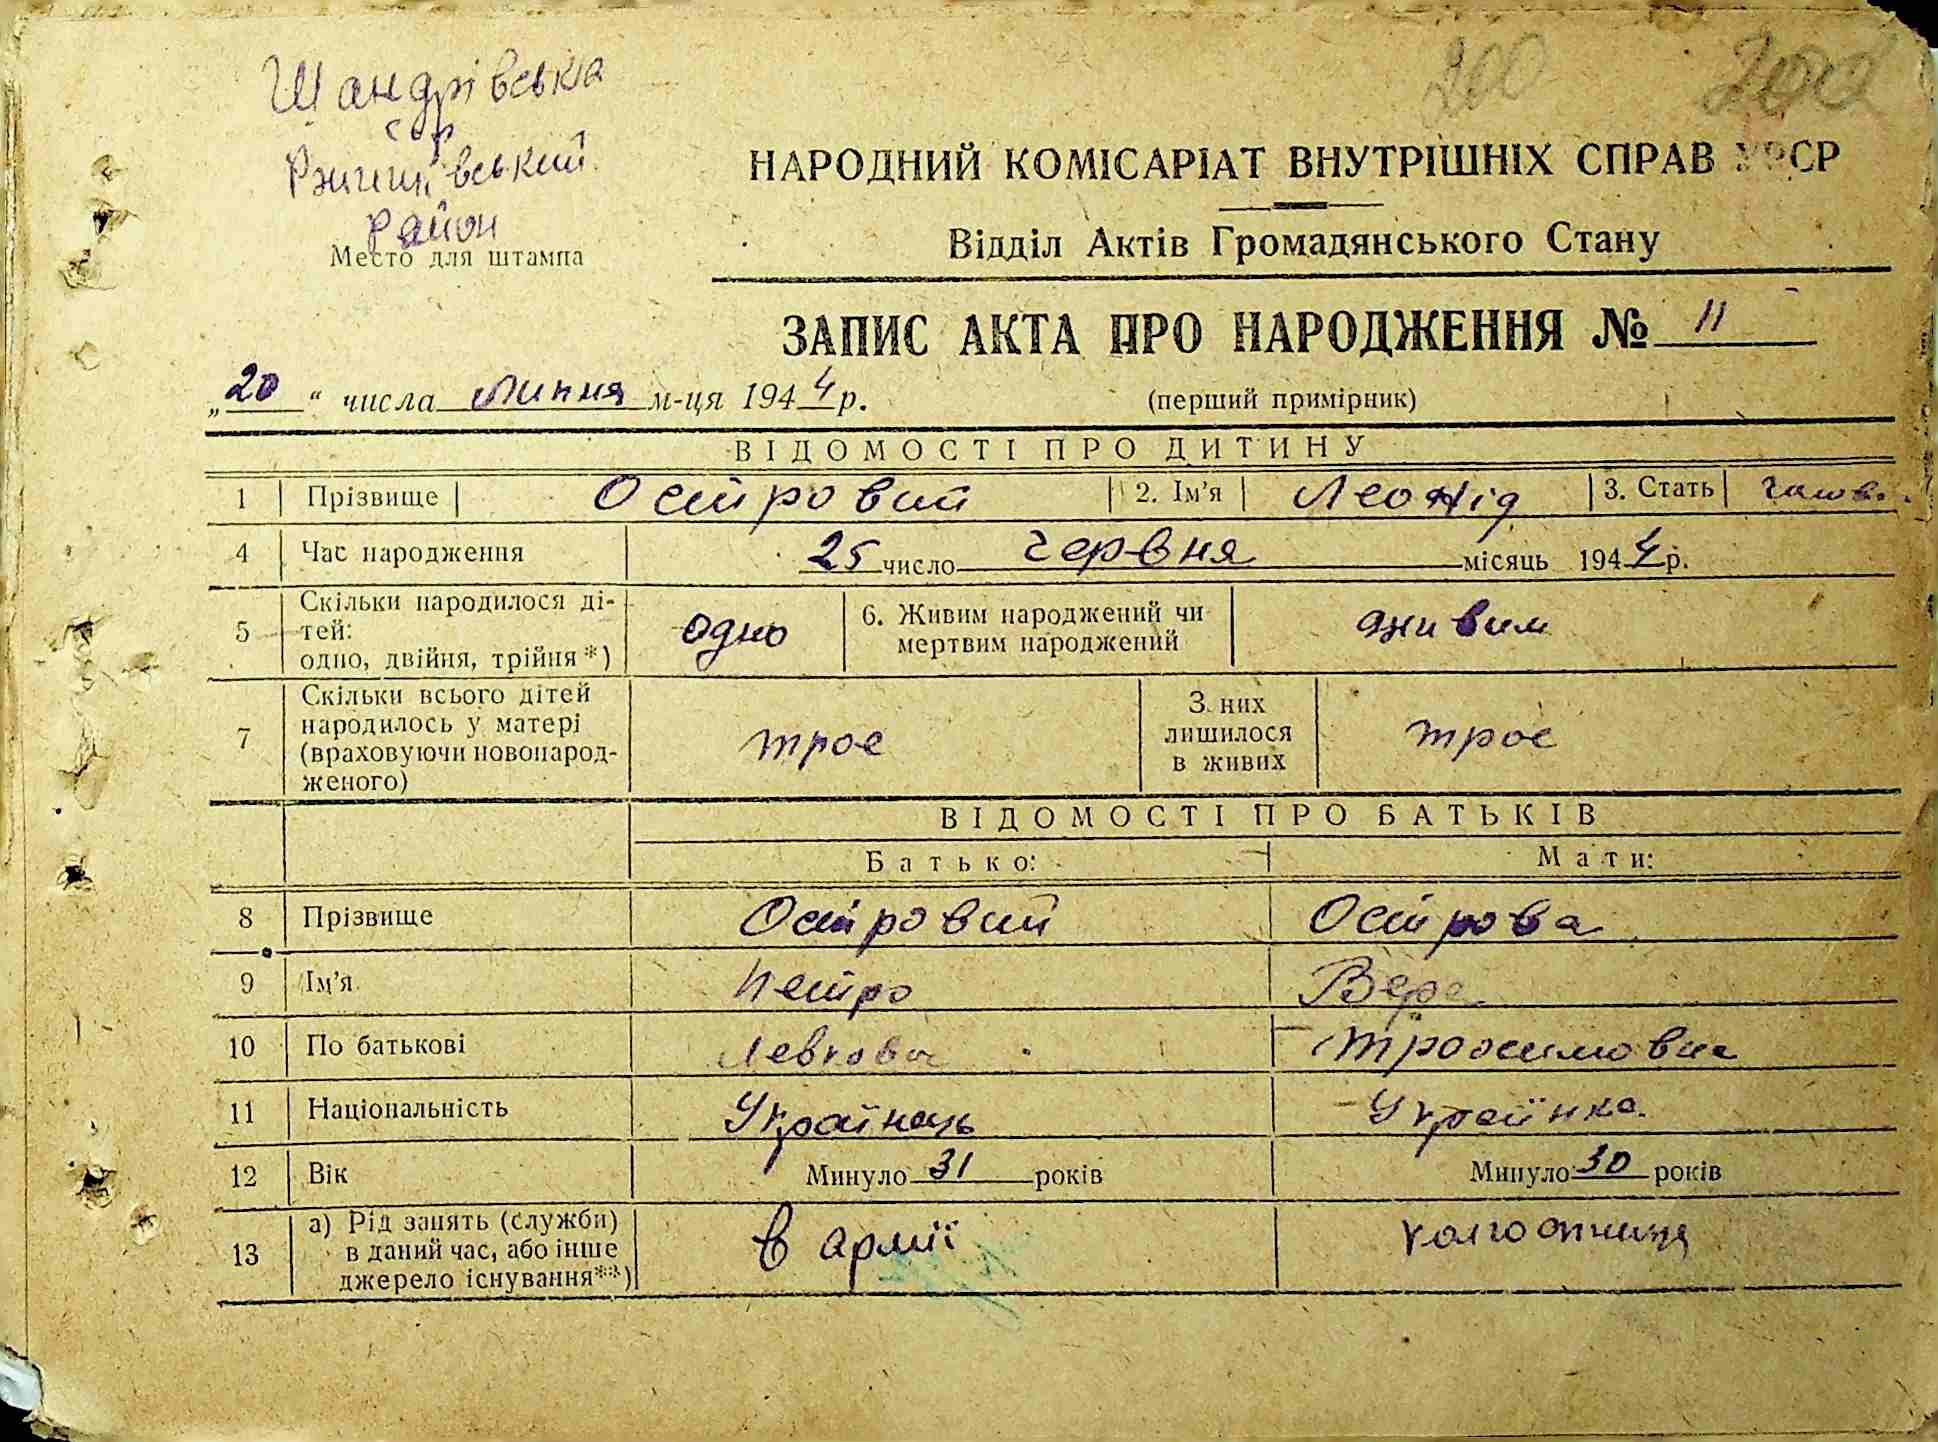 200 200
Шандрівська
с/р
Ржищівський
район
Место для штампа
НАРОДНИЙ КОМІСАРІАТ ВНУТРІШНІХ СПРАВ УРСР
Відділ Актів Громадянського Стану
ЗАПИС АКТА ПРО НАРОДЖЕННЯ № 11
„20“ числа липня м-ця 1944 р.
(перший примірник)
ВІДОМОСТІ ПРО ДИТИНУ
1 Прізвище Островий 2. Ім'я Леонід 3. Стать
4 Час народження 25 число червня місяць 1944 р.
5 Скільки народилося ді-
тей:
одно, двійня, трійня*) одно 6. Живим народжений чи
мертвим народжений живим
7 Скільки всього дітей
народилось у матері
(враховуючи новонарод-
женого) трое З них
лишилося
в живих трое
ВІДОМОСТІ ПРО БАТЬКІВ
Батько: Мати:
8 Прізвище Островий Острова
9 Ім'я Петро Вера
10 По батькові Левкович Трохимовна
11 Національність Українець Українка
12 Вік Минуло 31 років Минуло 30 років
13 а) Рід занять (служби)
в даний час, або інше
джерело існування**) в армії колгоспниця